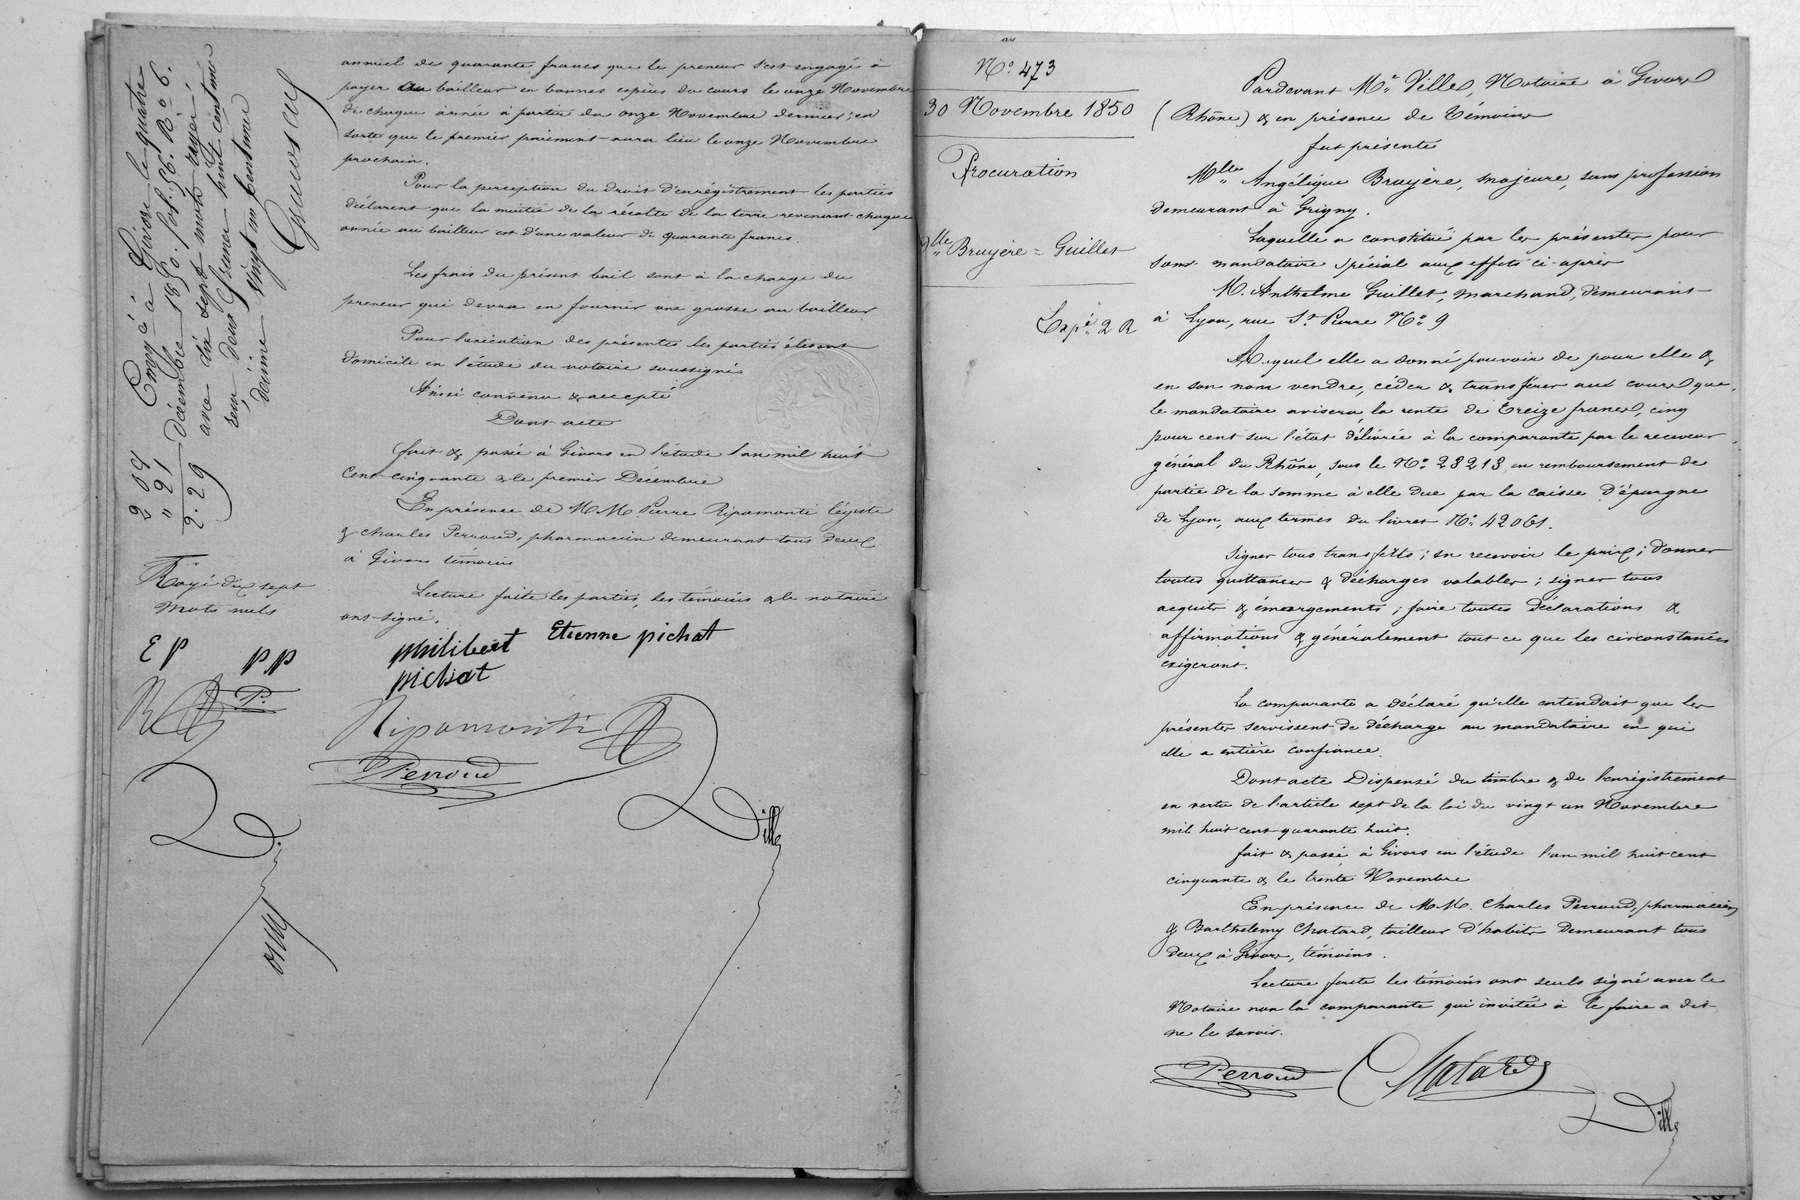 annuel de quarante francs que le preneur s'est engagé à
payer au bailleur en bonnes espèces du cours le onze Novembre
de chaque année à partir du onze Novembre dernier; en
sorte que le premier paiement aura lieu le onze Novembre
prochain.
Pour la perception du droit d'enrégistrement les parties
déclarent que la moitié de la récolte de la terre revenant chaque
année au bailleur est d'une valeur de quarante francs.
Les frais du présent bail sont à la charge du
preneur qui devra en fournir une grosse au bailleur
Pour l'exécution des présentes les parties élisent
domicile en l'étude du notaire soussigné
Ainsi convenu & accepté
Dont acte
fait & passé à Givors en l'étude l'an mil huit
cent cinquante & le premier Décembre
En présence de MM Pierre Ripamonti
& Charles Perroud, pharmacien demeurant tous deux
à Givors témoins
Lecture faite les parties, les témoins & le notaire
ont signé.
philibert Etienne pichat
pichat
Ripamonti
Perroud
Ville
Enregé à Givors le quatre
décembre 1850. fol. 56. Ro c 6.
avec dix sept mots rayés
reçu deux francs neuf centimes
décime vingt un centimes
2 09
" 21
2.29
Rayé dix sept
mots nuls
E P PP
R P.
No. 473
30 Novembre 1850
Procuration
Dlle Bruyère = Guillet
Expé. 2 R
Pardevant Me. Ville, Notaire à Givors
(Rhône) & en présence de témoins
fut présente
Mlle. Angélique Bruyère, majeure, sans profession
demeurant à Grigny.
Laquelle a constitué par les présentes pour
son mandataire spécial aux effets ci-après
M. Anthelme Guillet, marchand, demeurant
à Lyon, rue St. Pierre No. 9
Auquel elle a donné pouvoir de pour elle &
en son nom vendre, céder & transférer aux cours que,
le mandataire avisera la rente de treize francs, cinq
pour cent sur l'état délivrée à la comparante par le receveur
général du Rhône, sous le No. 23213 en remboursement de
partie de la somme à elle due par la caisse d'épargne
de Lyon, aux termes du livret No. 42061.
Signer tous transferts; en recevoir le prix; donner
toutes quittances & décharges valables; signer tous
acquits & émargements; faire toutes déclarations &
affirmations & généralement tout ce que les circonstances
exigeront.
La comparante a déclaré qu'elle entendait que les
présentes servissent de décharge au mandataire en qui
elle a entière confiance.
Dont acte Dispensé du timbre & de l'enrégistrement
en vertu de l'article sept de la loi du vingt un Novembre
mil huit cent quarante huit.
fait & passé à Givors en l'étude l'an mil huit cent
cinquante & le trente Novembre
En présence de MM. Charles Perroud, pharmacien
& Barthelemy Chatard, tailleur d'habits demeurant tous
deux à Givors, témoins.
Lecture faite les témoins ont seuls signé avec le
Notaire non la comparante qui invitée à le faire a dit
ne le savoir.
Perroud Chatard
Ville